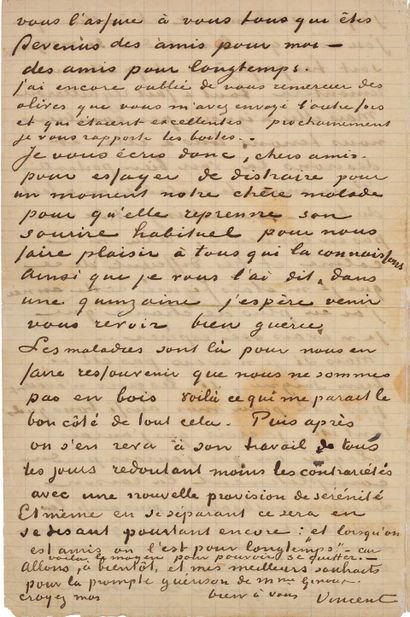 vous l'assure à vous tous qui êtes
devenus des amis pour moi –
des amis pour longtemps.
j'ai encore oublié de vous remercier des
olives que vous m'avez envoyé l'autre fois
et qui étaient excellentes prochainement
je vous rapporte les boites. –
Je vous écris donc, chers amis.
pour essayer de distraire pour
un moment notre chère malade
pour qu'elle reprenne son
sourire habituel pour nous
faire plaisir à tous qui la connaissons
Ainsi que je vous l'ai dit, dans
une quinzaine j'espère venir
vous revoir bien guérie,
Les maladies sont là pour nous en
faire ressouvenir que nous ne sommes
pas en bois voilà ce qui me parait le
bon côté de tout cela. – Puis après
on s'en reva à son travail de tous
les jours redoutant moins les contrariétés
avec une nouvelle provision de sérénité
Et même en se séparant ce sera en
se disant pourtant encore: et lorsqu'on
est amis on l'est pour longtemps; – car
voilà le moyen pour pouvoir se quitter. –
Allons, à bientôt, et mes meilleurs souhaits
pour la prompte guérison de mme Ginoux.
croyez moi bien à vous Vincent